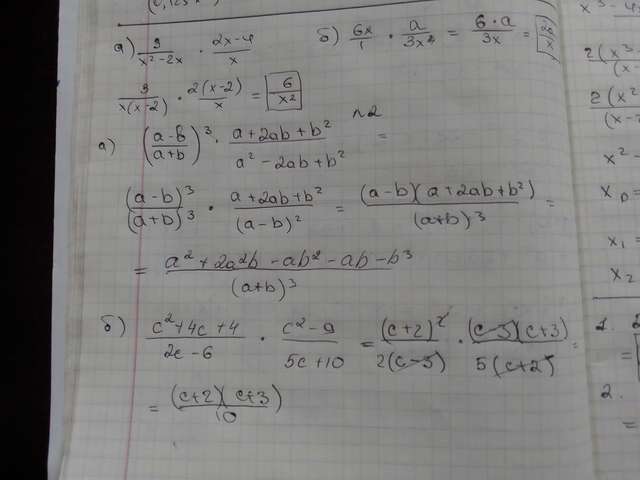 а) 3/(x²-2x) · (2x-4)/x   б) 6x/1 · a/(3x²) = (6·a)/(3x) = 2a/x
3/(x(x-2)) · 2(x-2)/x = 6/x²
N2
а) ((a-b)/(a+b))³ · (a+2ab+b²)/(a²-2ab+b²) =
(a-b)³/(a+b)³ · (a+2ab+b²)/(a-b)² = (a-b)(a+2ab+b²)/(a+b)³ =
= (a²+2a²b-ab²-ab-b³)/(a+b)³
б) (c²+4c+4)/(2c-6) · (c²-9)/(5c+10) = (c+2)²/(2(c-3)) · (c-3)(c+3)/(5(c+2)) =
= (c+2)(c+3)/10
2(x³-
2(x²
(x-
x²-
x₀=
x₁=
x₂
1.
=
2.
=